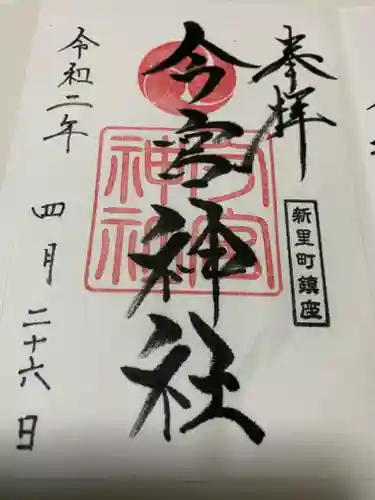 奉拝
新里町鎮座
今宮神社
今宮
神社
令和二年 四月 二十六日